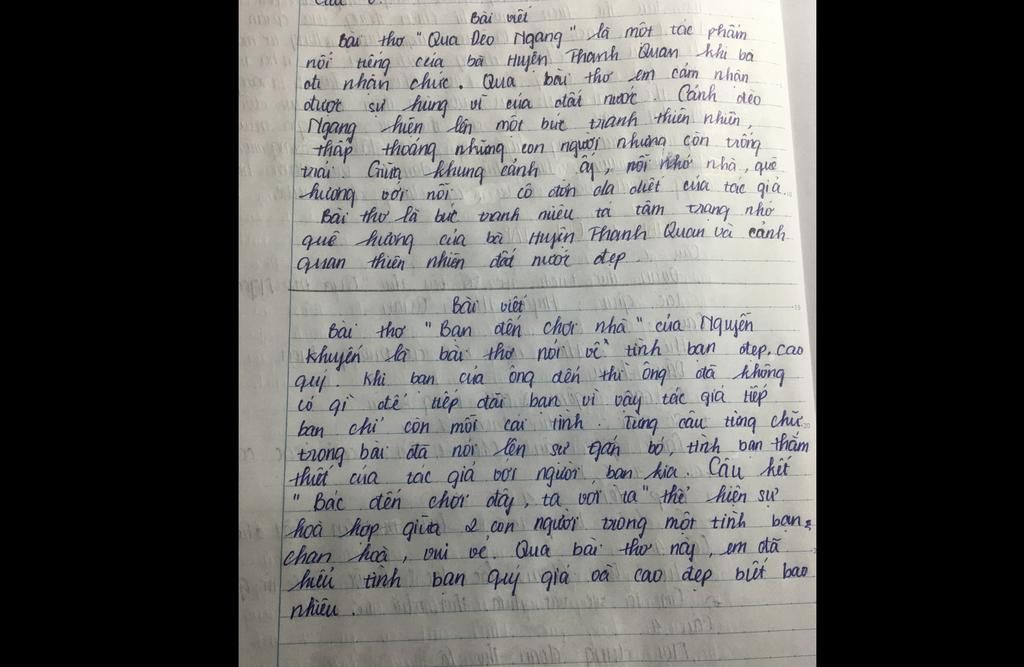 Bài viết
Bài thơ "Qua Đèo Ngang" là một tác phẩm
nổi tiếng của bà Huyện Thanh Quan khi bà
đi nhận chức. Qua bài thơ em cảm nhận
được sự hùng vĩ của đất nước. Cảnh đèo
Ngang hiện lên một bức tranh thiên nhiên,
thấp thoáng những con người nhưng còn trống
trải Giữa khung cảnh ấy, nỗi nhớ nhà, quê
hương với nỗi cô đơn da diết của tác giả.
Bài thơ là bức tranh miêu tả tâm trạng nhớ
quê hương của bà Huyện Thanh Quan và cảnh
quan thiên nhiên đất nước đẹp.
Bài viết
Bài thơ "Bạn đến chơi nhà" của Nguyễn
Khuyến là bài thơ nói về tình bạn đẹp, cao
quý. Khi bạn của ông đến thì ông đã không
có gì để tiếp đãi bạn vì vậy tác giả tiếp
bạn chỉ còn mỗi cái tình. Từng câu từng chữ
trong bài đã nói lên sự gắn bó, tình bạn thắm
thiết của tác giả với người bạn kia. Câu kết
"Bác đến chơi đây, ta với ta" thể hiện sự
hoà hợp giữa 2 con người trong một tình bạn
chan hoà, vui vẻ. Qua bài thơ này, em đã
hiểu tình bạn quý giá và cao đẹp biết bao
nhiêu.